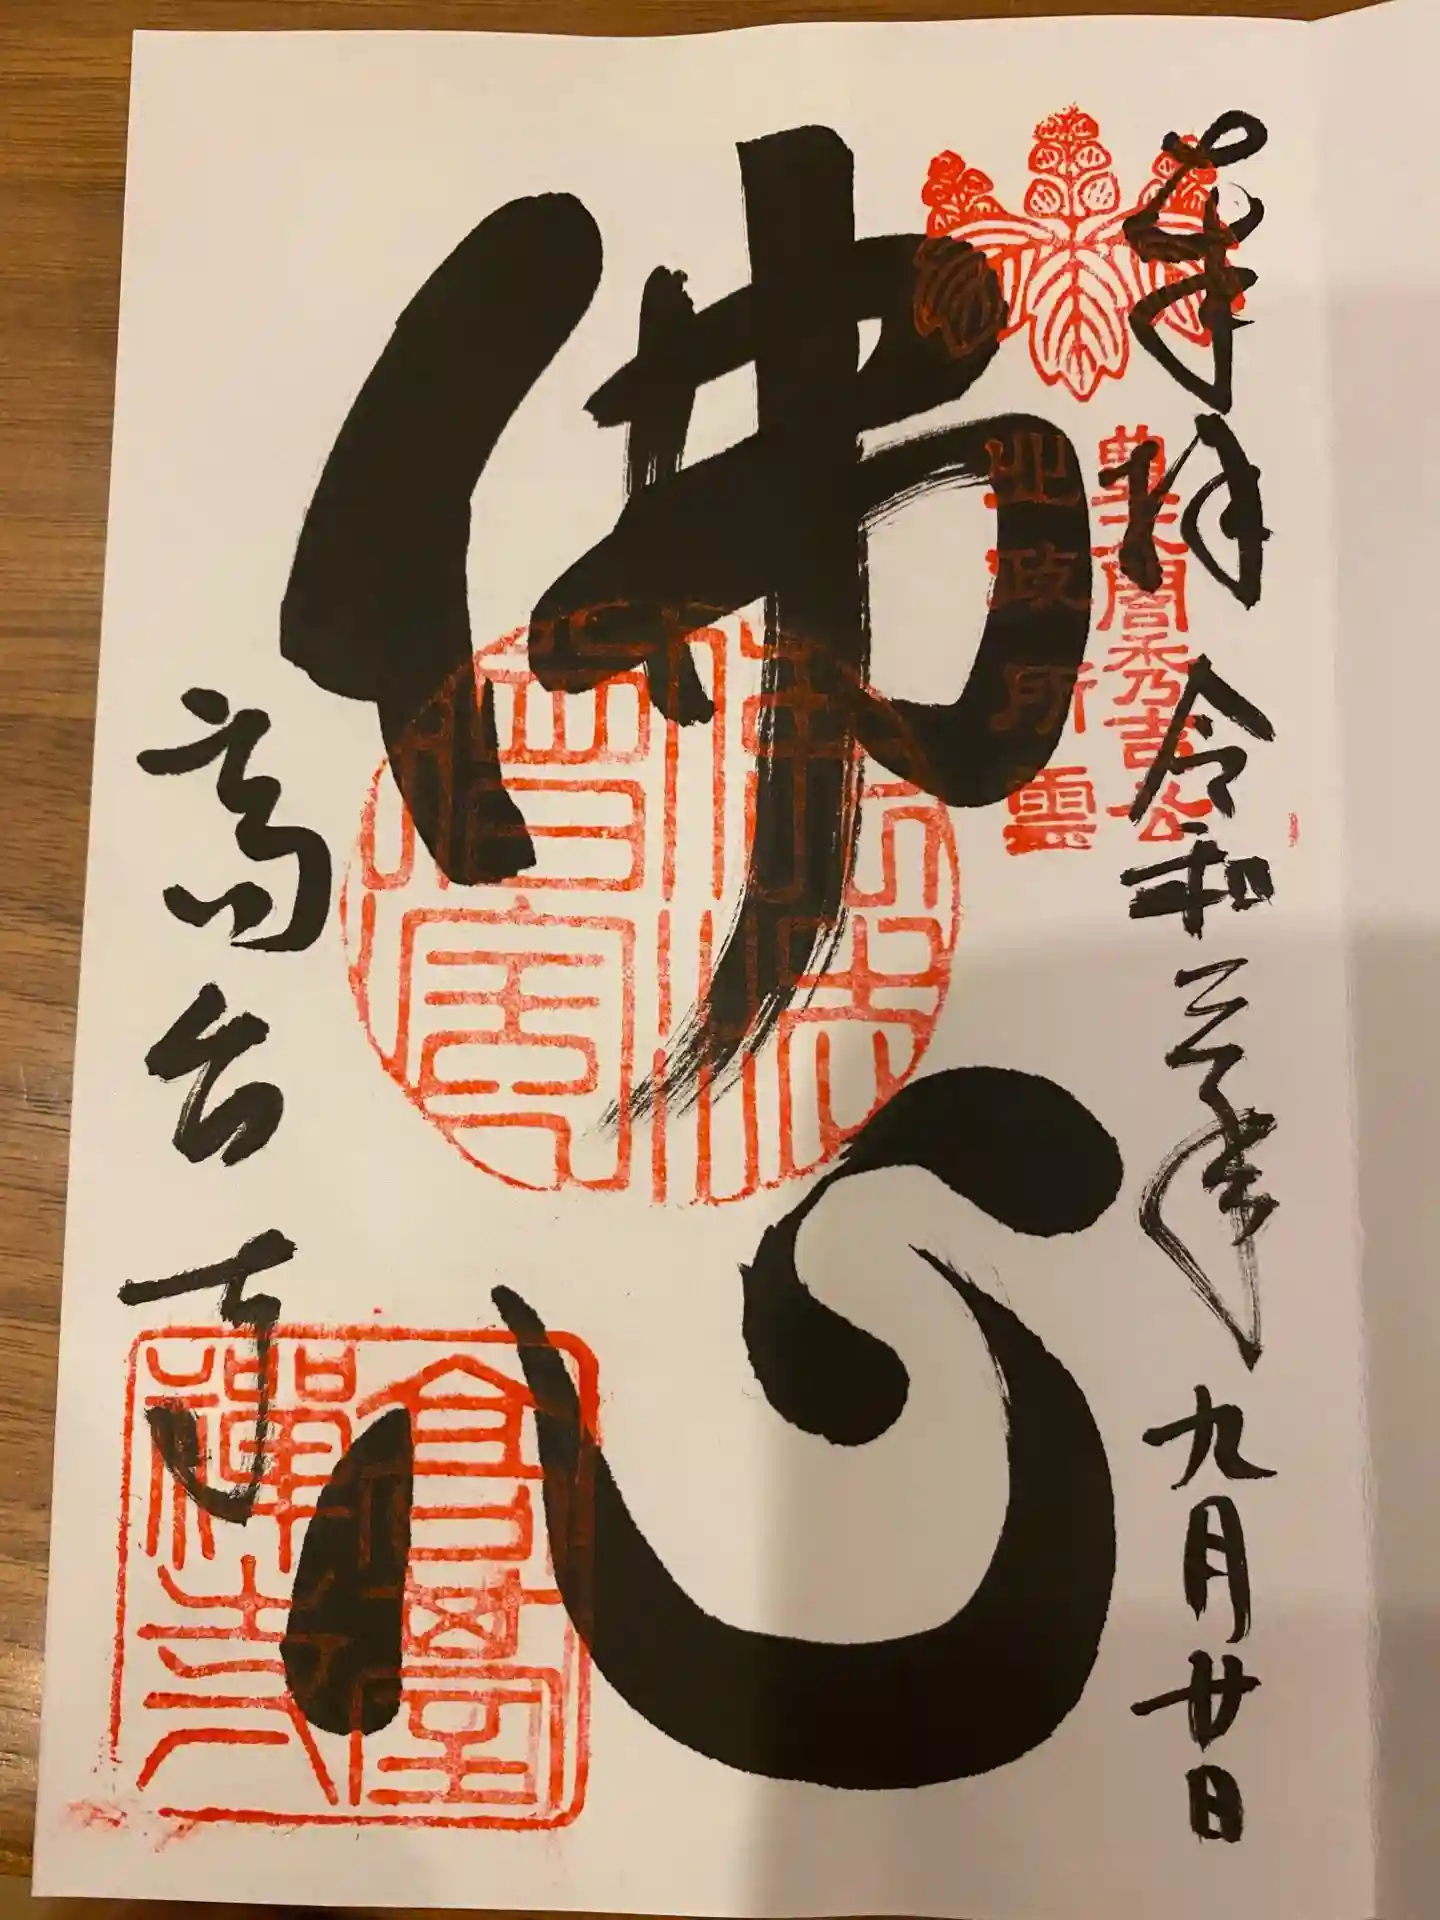 奉拝 令和三年九月廿日
豊太閤秀吉公
北政所霊
佛心
佛法僧寶
高台寺
高臺禅寺